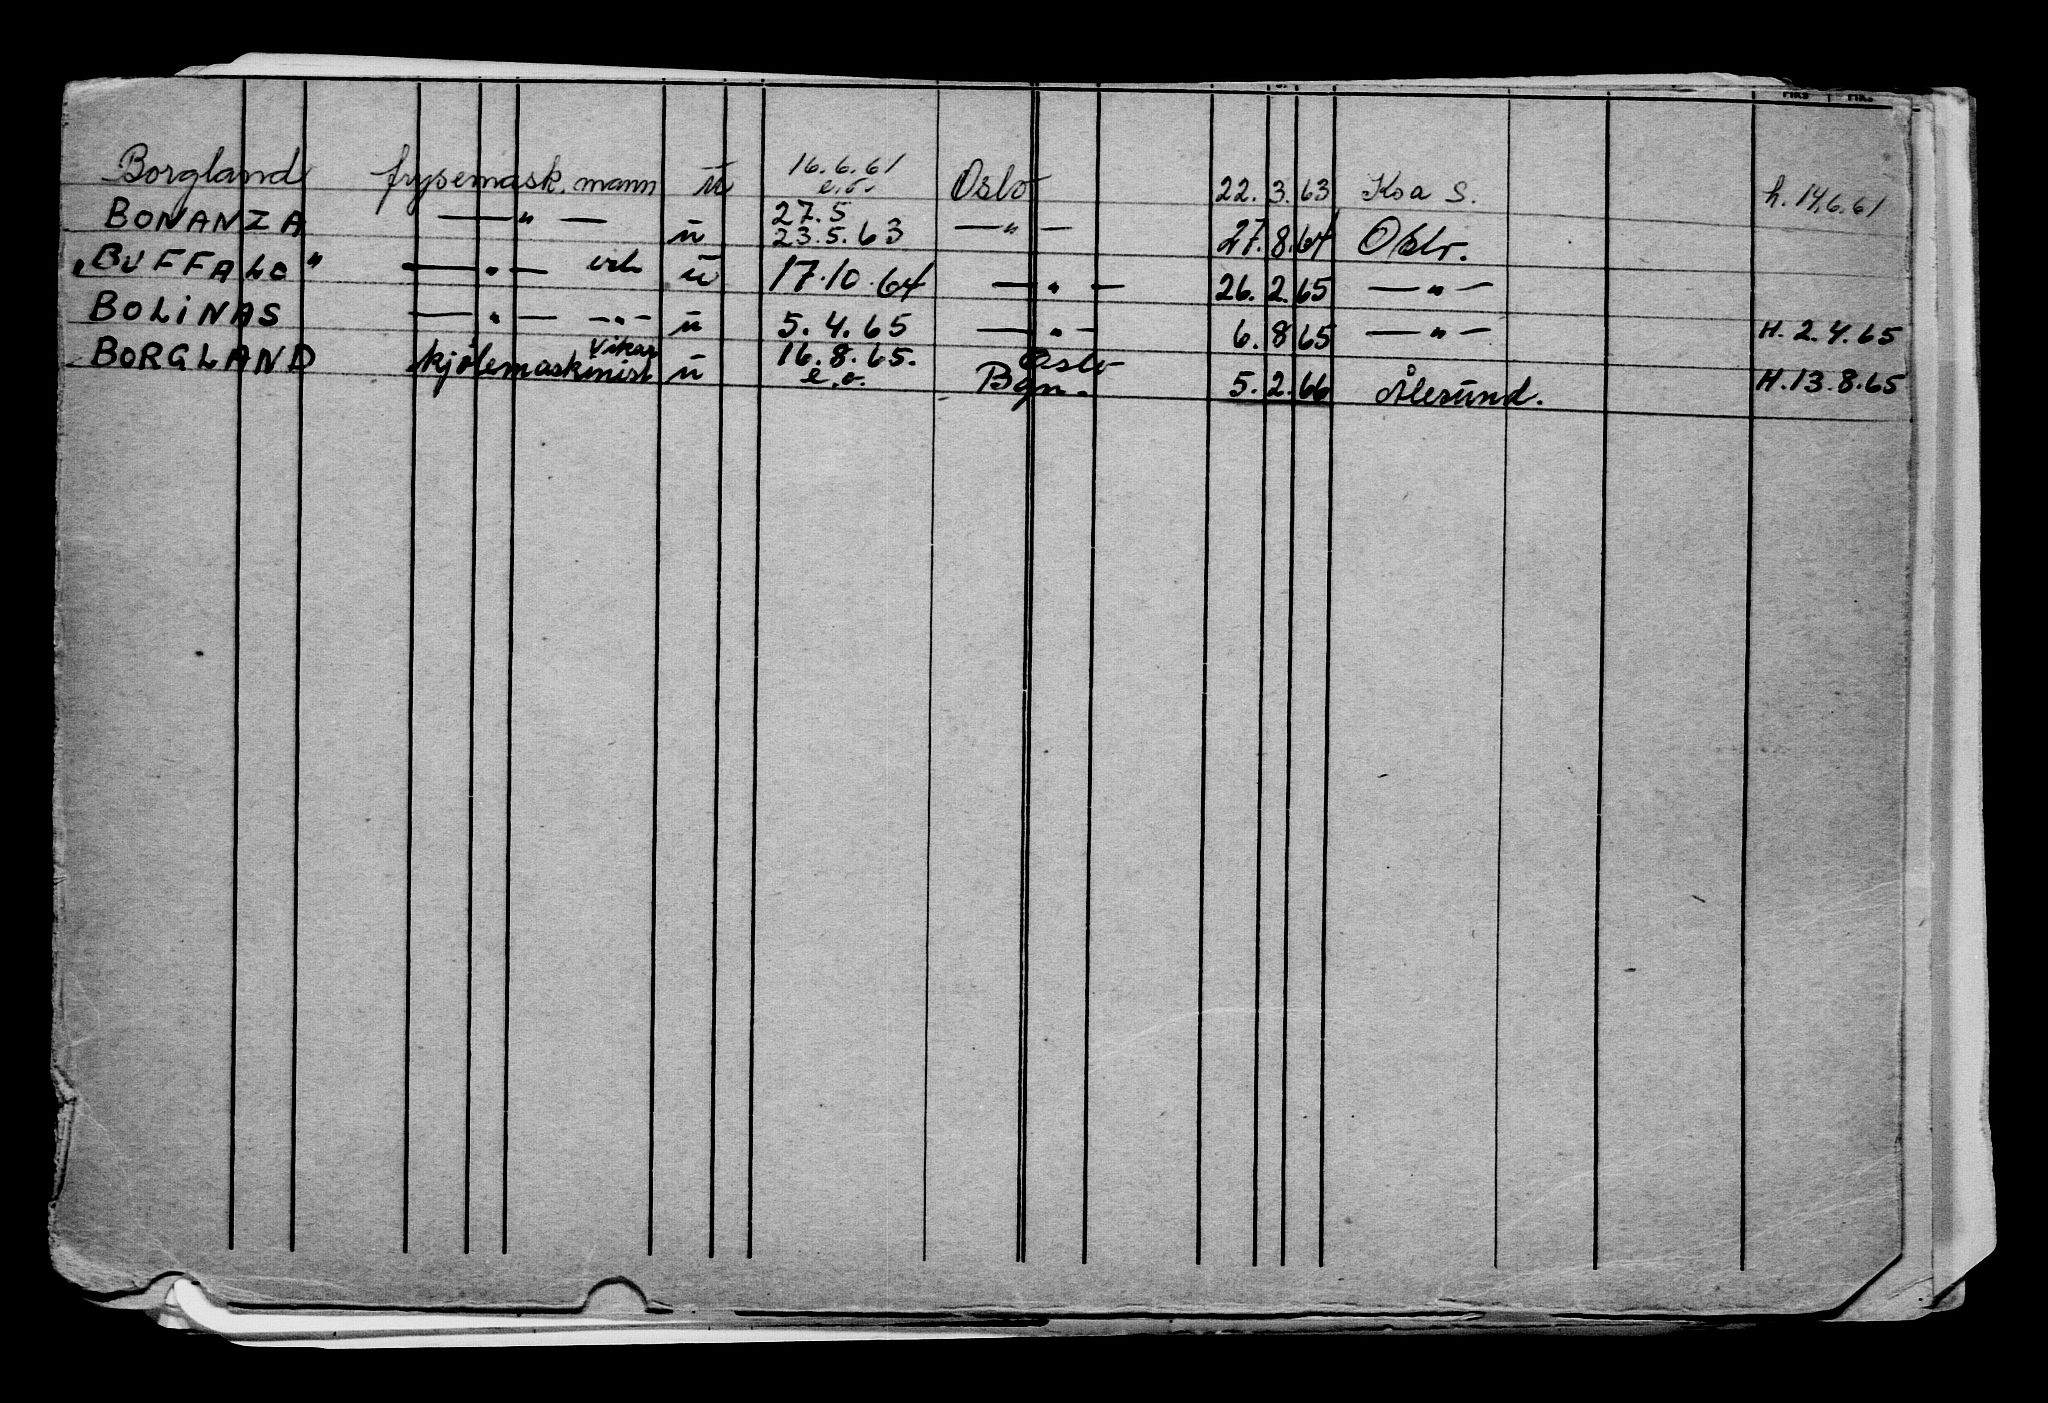 FIKS FIKS
Borgland frysemask. mann u 16.6.61 e.o. Oslo 22. 3. 63 Kra S. h. 14.6.61
BONANZA —"— u 27.5 23.5.63 —"— 27. 8. 64 Oslo.
"BUFFALO" —"— u 17.10.64 —"— 26. 2. 65 —"—
BOLINAS —"— —"— u 5.4.65 —"— 6. 8 65 —"— H. 2.4.65
BORGLAND kjølemaskinist Vikar u 16.8.65. e.o. Oslo Bgn. 5. 2. 66 Ålesund. H. 13.8.65